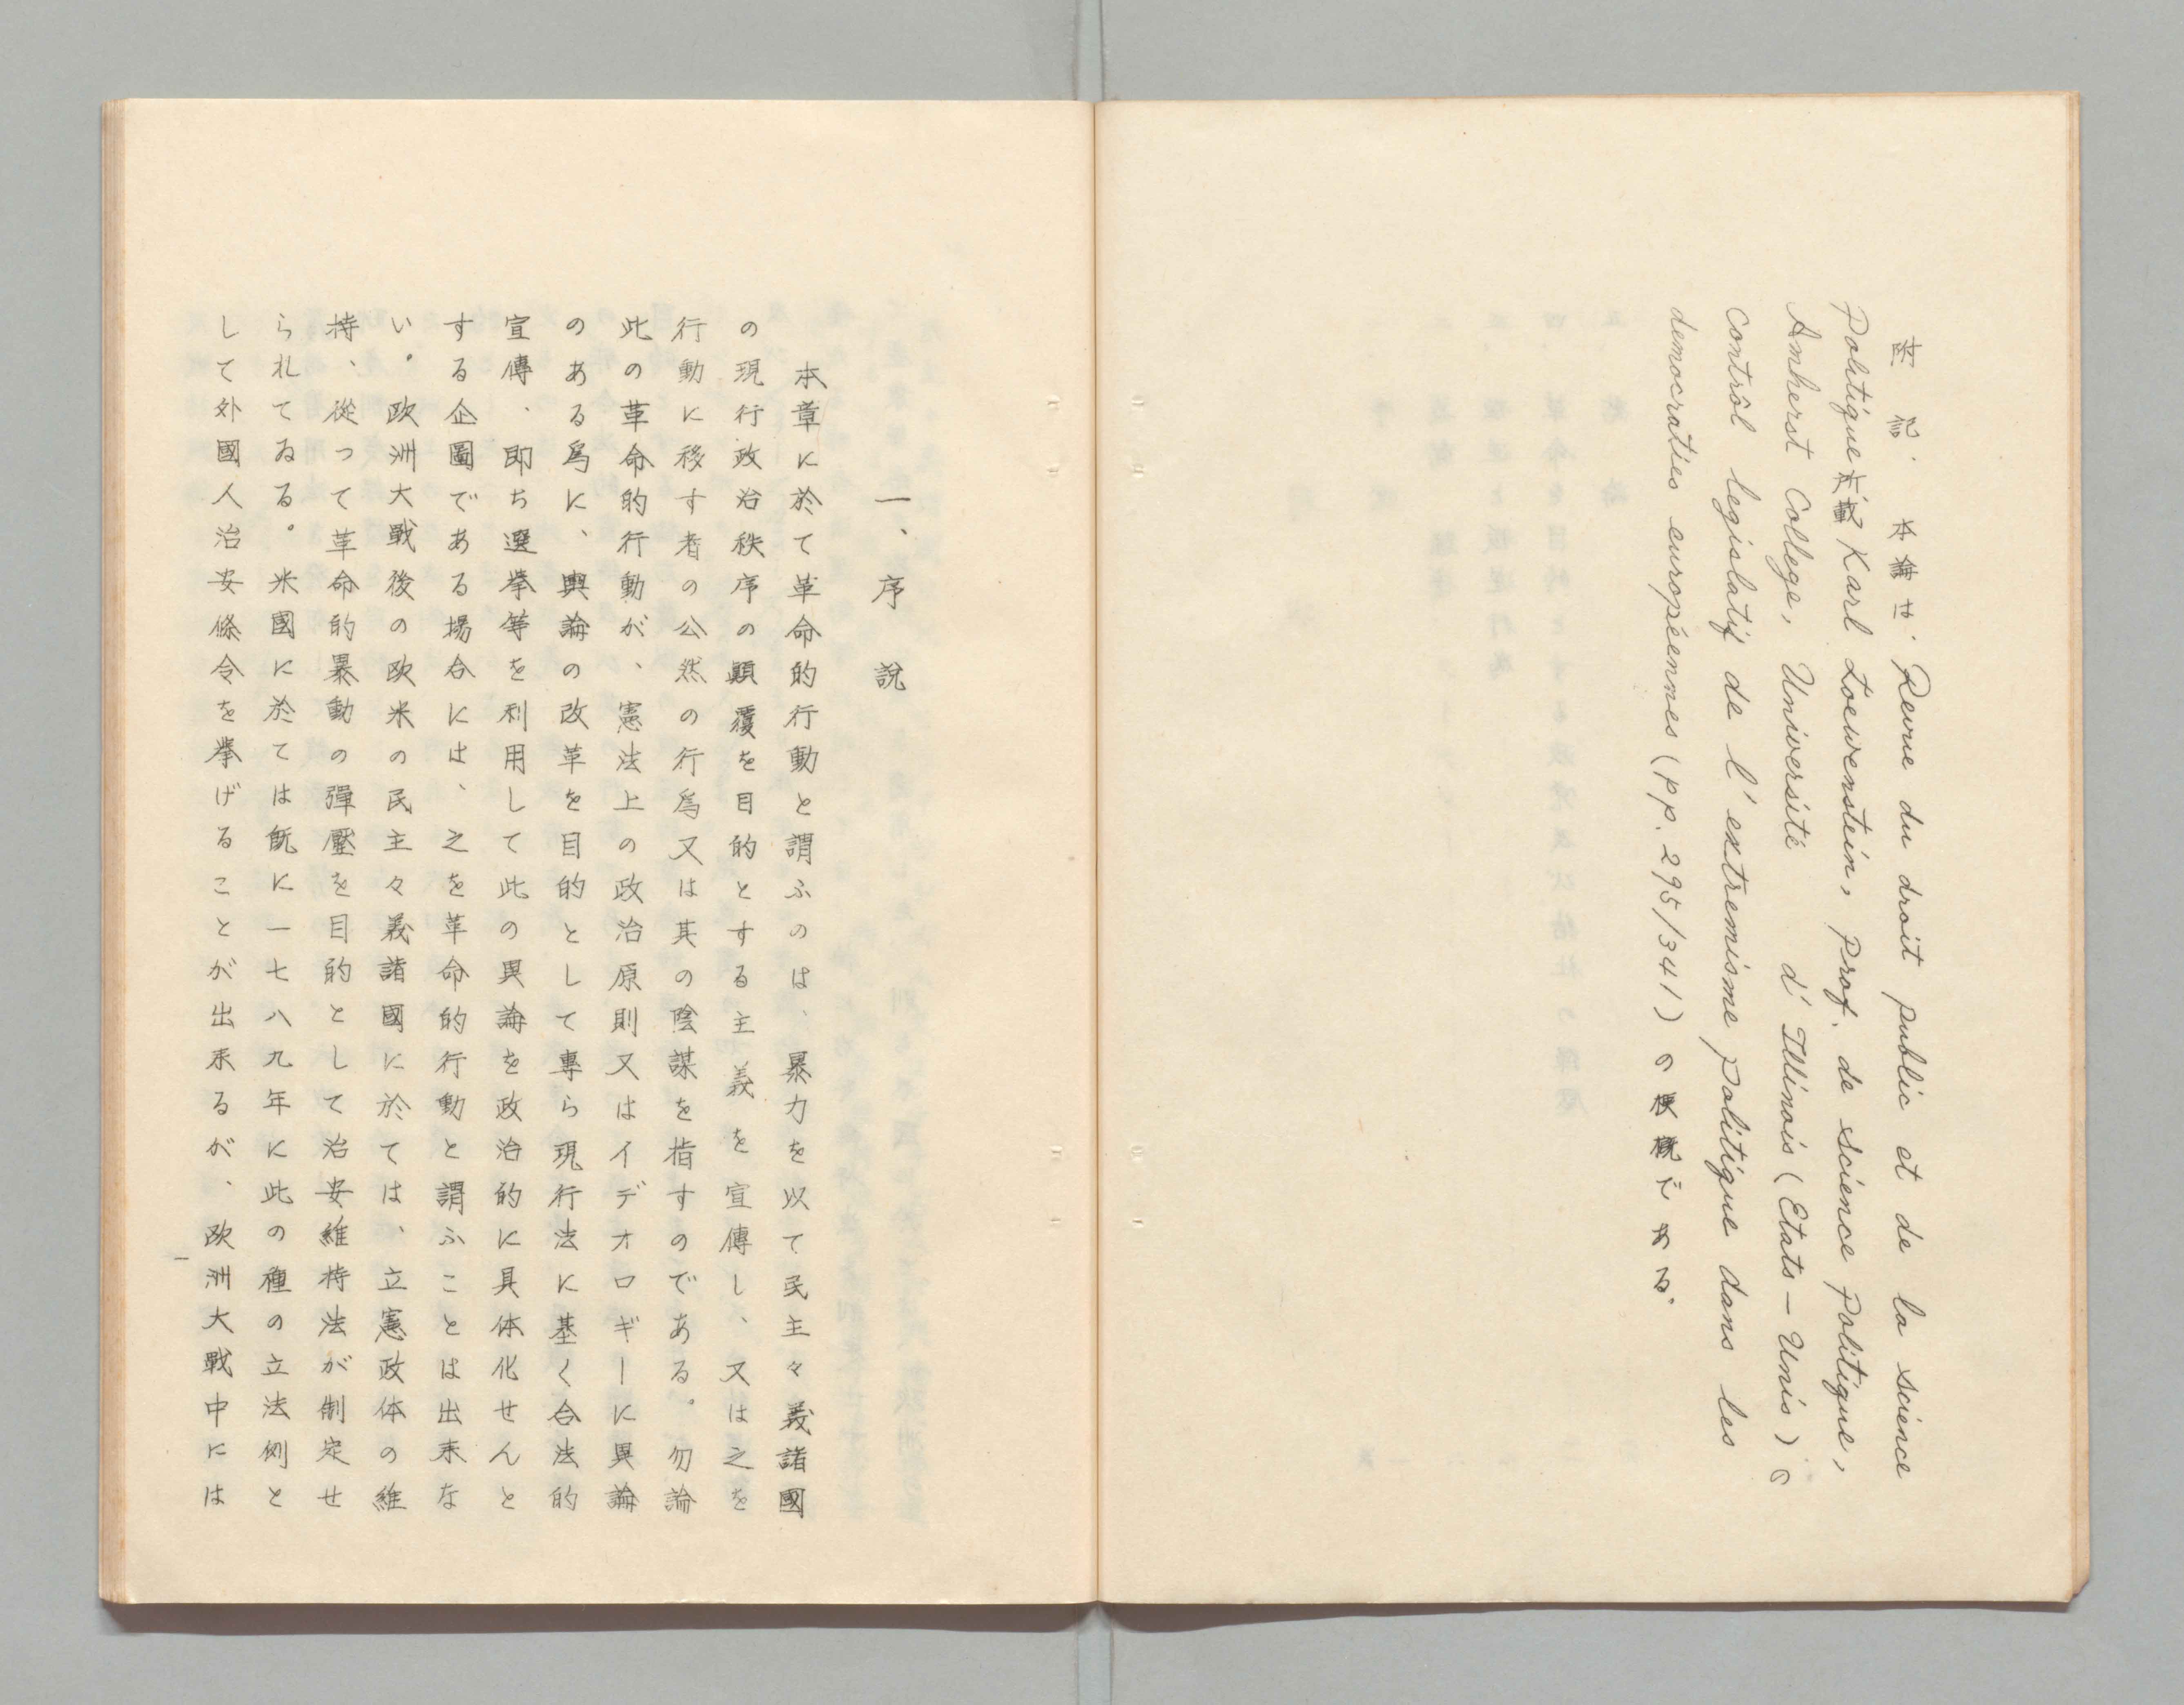 附記. 本論は. Revue du droit public et de la science
Politique 所載 Karl Loewenstein, Prof. de science Politique,
Amherst College, Université d'Illinois (Etats-Unis) の
Contrôl legislatif de l'extremisme politique dans les
democraties européennes (pp. 295/341) の梗概である.
一、序説
本章に於て革命的行動と謂ふのは、暴力を以て民主々義諸國
の現行政治秩序の顚覆を目的とする主義を宣傳し、又は之を
行動に移す者の公然の行爲又は其の陰謀を指すのである。勿論
此の革命的行動が、憲法上の政治原則又はイデオロギーに異論
のある爲に、輿論の改革を目的として專ら現行法に基く合法的
宣傳、即ち選挙等を利用して此の異論を政治的に具体化せんと
する企圖である場合には、之を革命的行動と謂ふことは出来な
い。欧洲大戰後の欧米の民主々義諸國に於ては、立憲政体の維
持、從って革命的暴動の彈壓を目的として治安維持法が制定せ
られてゐる。米國に於ては既に一七八九年に此の種の立法例と
して外國人治安條令を挙げることが出来るが、欧洲大戰中には
一